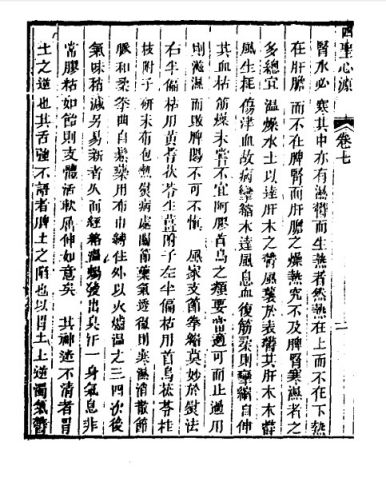 四聖心源
卷七
腎水必寒其中亦有濕鬱而生熱者然熱在上而不在下熱
在肝膽而不在脾腎而肝膽之燥熱究不及脾腎寒濕者之
多總宜溫燥水土以達肝木之鬱風襲於表鬱其肝木木鬱
風生耗傷津血故病攣縮木達風息血復筋柔則攣縮自伸
其血枯筋燥未嘗不宜阿膠首烏之類要當適可而止過用
則滋濕而敗脾陽不可不慎 風家支節拳縮莫妙於熨法
右半偏枯用黃耆茯苓生薑附子左半偏枯用首烏茯苓桂
枝附子研末布包熱熨病處關節藥氣透徹則寒濕消散筋
脈和柔拳曲自鬆藥用布巾縛住外以火爐溫之三四次後
氣味稍減另易新者久而經絡溫暢發出臭汗一身氣息非
常膠粘如飴則支體活軟屈伸如意矣 其神迷不清者胃
土之逆也其舌強不語者脾土之陷也以胃土上逆濁氣鬱